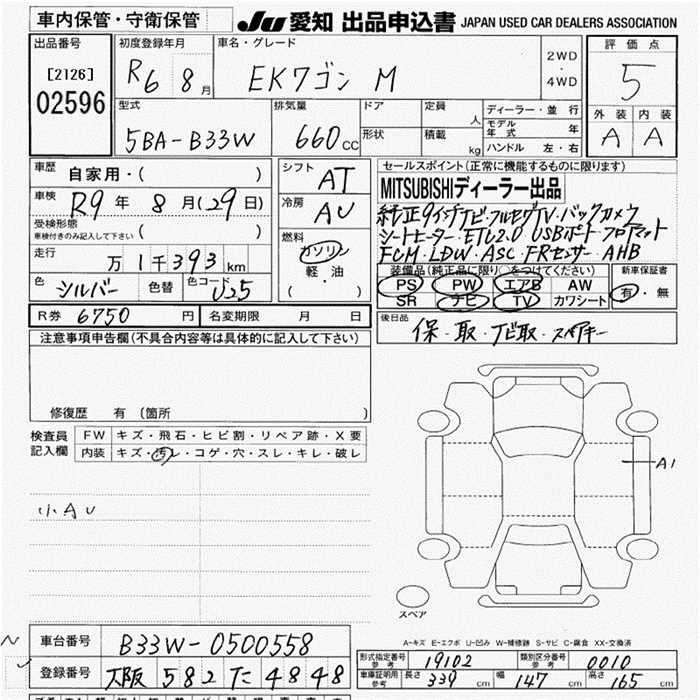 車内保管・守衛保管 JU 愛知 出品申込書 JAPAN USED CAR DEALERS ASSOCIATION
出品番号 初度登録年月 車名・グレード 2WD・4WD 評価点
[2126] R6 8月 EKワゴン M 5
02596
外装 内装
型式 排気量 ドア 定員 人 ディーラー・並行
モデル年式 年
5BA-B33W 660 CC 形状 積載 kg ハンドル 左・右 A A
車歴 自家用・( ) シフト AT セールスポイント(正常に機能するものに限ります)
MITSUBISHIディーラー出品
車検 R9年 8月(29日) 冷房 AU 純正9インチナビ・フルセグTV・バックカメラ
受検形態 車検付きのみ記入して下さい ( ) シートヒーター・ETC2.0 USBポート・フロアマット
燃料 ガソリン FCM・LDW・ASC・FRセンサー・AHB
走行 万1千393km 軽・油 装備品(純正品に限り○をつけてください) 新車保証書
( ) PS PW エアB AW 有・無
色 シルバー 色替 色コード U25 SR ナビ TV カワシート
R券 6750円 名変期限 月 日 後日品
保・取・ナビ取・スペアキー
注意事項申告欄(不具合内容等は具体的に記入して下さい)
修復歴 有 (箇所 )
検査員記入欄 FW キズ・飛石・ヒビ割・リペア跡・X要
内装 キズ・汚レ・コゲ・穴・スレ・キレ・破レ
A1
小AU
スペア
A-キズ E-エクボ U-凹み W-補修跡 S-サビ C-腐食 XX-交換済
車台番号 B33W-0500558
型式指定番号 参考 19102 類別区分番号 参考 0010
登録番号 大阪 582 た 4848
車庫証明用 参考 長さ 339cm 幅 147cm 高さ 165cm